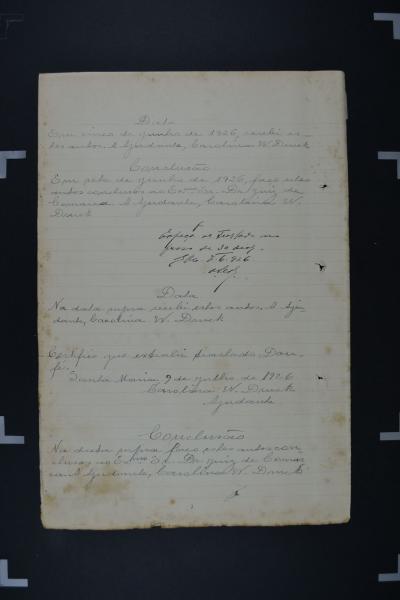 Data
Em cinco de junho de 1926, recebi es-
tes autos. A Ajudante, Carolina W. Druck
Conclusão
Em sete de junho de 1926, faço estes
autos conclusos ao Exmo Sr. Dr. Juiz de
Comarca. A Ajudante, Carolina W.
Druck
de 30 dias.
6. 926
Data
Na data supra recebi estes autos. A Aju-
dante, Carolina W. Druck
Certifico que extrahi o traslado. Dou
fé.
Santa Maria, 9 de julho de 1926
Carolina W. Druck
Ajudante
Conclusão
Na data supra faço estes autos con-
clusos ao Exmo Sr. Dr. Juiz de Comar-
ca. A Ajudante, Carolina W. Druck